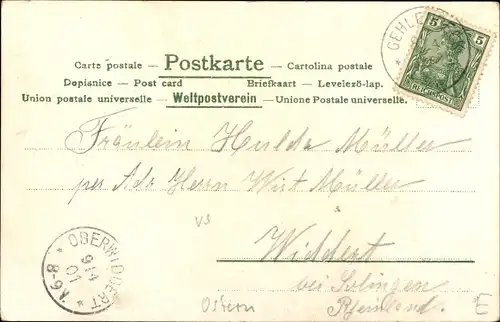 Postkarte
Carte postale — Cartolina postale
Dopisnice — Post card Briefkaart — Levelezö-lap.
Union postale universelle — Weltpostverein — Unione Postale universelle.
5 5
REICHSPOST
GEHLE
Fräulein Hulda Müller
per Adr Herrn Wirt Müller
Widdert
bei Solingen
Rheinland.
OBERWIDDERT
9/4
01
N.6-8
VS
Ostern
E